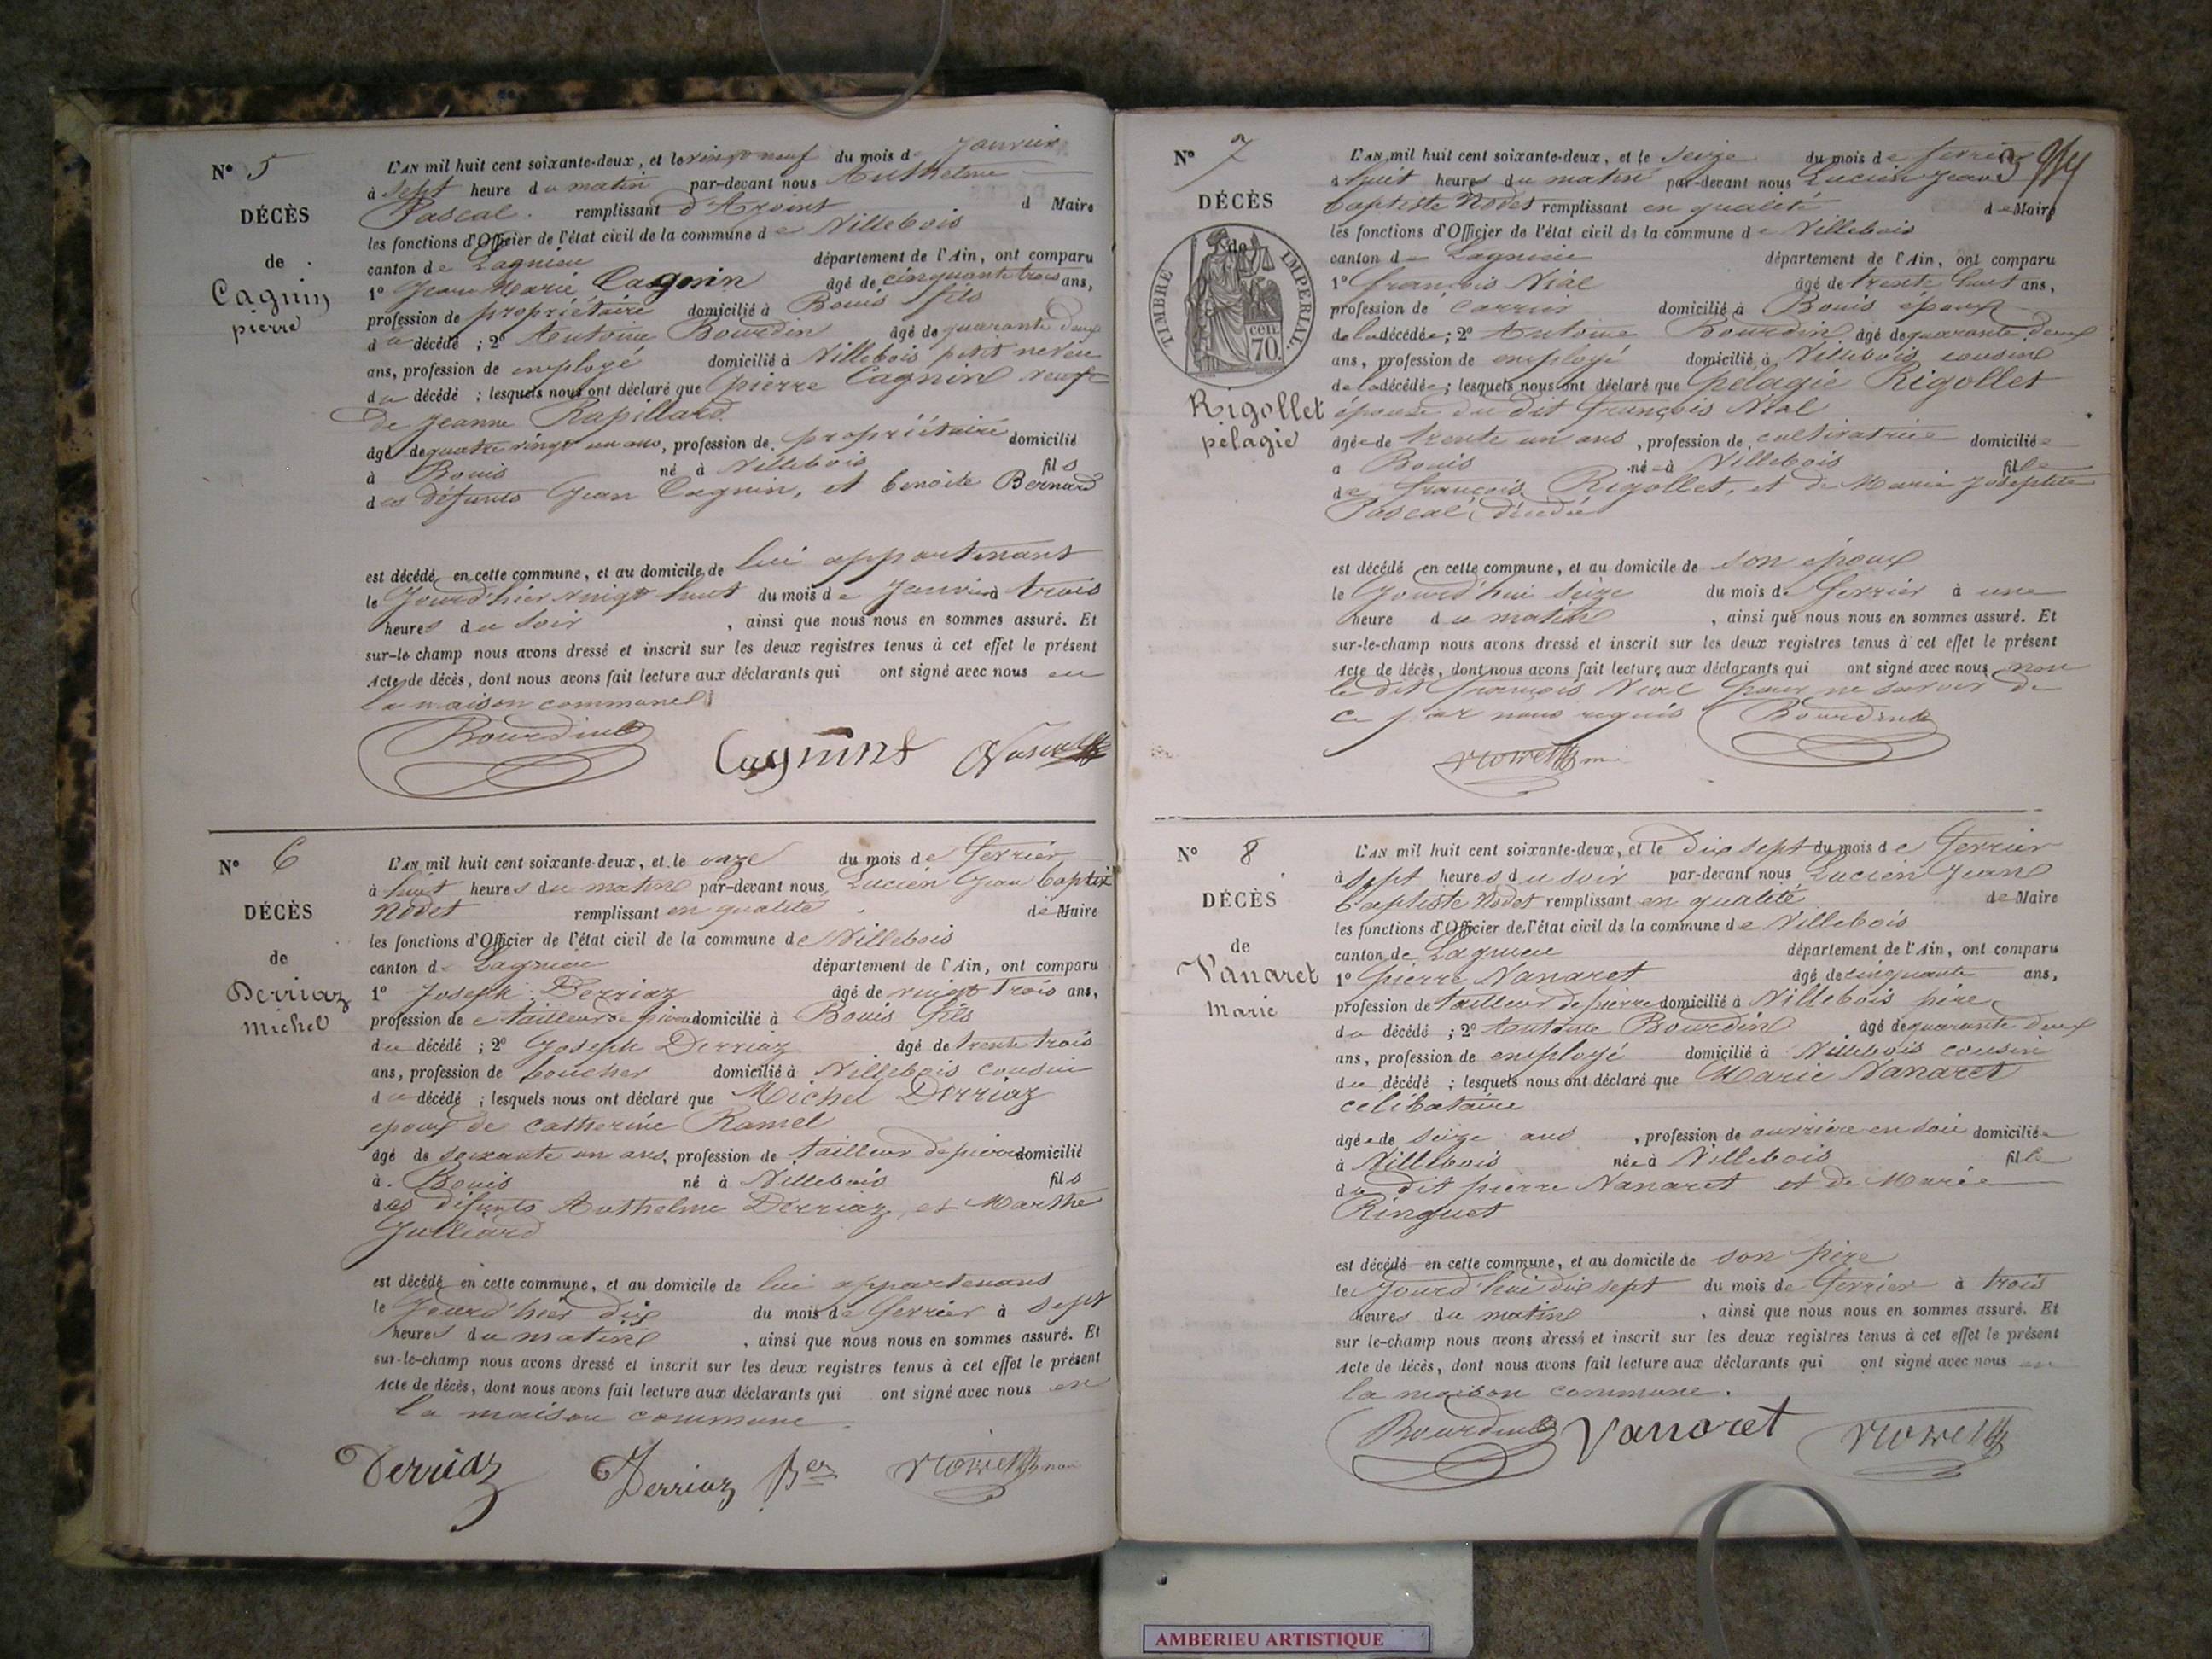 N° 5
DÉCÈS
de
Cagnin
pierre
L'AN mil huit cent soixante-deux, et le vingt neuf du mois de Janvier
à sept heure du matin par-devant nous Anthelme
Pascal. remplissant d'Adjoint d Maire
les fonctions d'Officier de l'état civil de la commune de Villebois
canton de Lagnieu département de l'Ain, ont comparu
1° Jean Marie Cagnin âgé de cinquante trois ans,
profession de propriétaire domicilié à Bouis fils
du décédé ; 2° Antoine Bourdin âgé de quarante deux
ans, profession de employé domicilié à Villebois petit neveu
du décédé ; lesquels nous ont déclaré que pierre Cagnin veuf
de Jeanne Rapillard
âgé de quatre vingt un ans, profession de propriétaire domicilié
à Bouis né à Villebois fils
des défunts Jean Cagnin, et benoite Bernard
est décédé en cette commune, et au domicile de lui appartenant
le Jourd'hier vingt huit du mois de Janvier à trois
heures du soir , ainsi que nous nous en sommes assuré. Et
sur-le champ nous avons dressé et inscrit sur les deux registres tenus à cet effet le présent
Acte de décès, dont nous avons fait lecture aux déclarants qui ont signé avec nous en
la maison commune
Bourdin Cagnin
N° 6
DÉCÈS
de
Derriaz
michel
L'AN mil huit cent soixante-deux, et le onze du mois de Fevrier
à huit heures du matin par-devant nous Lucien Jean baptiste
Nodet remplissant en qualité de Maire
les fonctions d'Officier de l'état civil de la commune de Villebois
canton de Lagnieu département de l'Ain, ont comparu
1° Joseph Derriaz âgé de vingt trois ans,
profession de tailleur de pierre domicilié à Bouis fils
du décédé ; 2° Joseph Derriaz âgé de trente trois
ans, profession de boucher domicilié à Villebois cousin
du décédé ; lesquels nous ont déclaré que Michel Derriaz
epoux de Catherine Ramel
âgé de soixante un ans, profession de tailleur de pierre domicilié
à Bouis né à Villebois fils
des défunts Anthelme Derriaz, et Marthe
Julliard
est décédé en cette commune, et au domicile de lui appartenant
le Jourd'hier dix du mois de Fevrier à sept
heures du matin , ainsi que nous nous en sommes assuré. Et
sur-le-champ nous avons dressé et inscrit sur les deux registres tenus à cet effet le présent
Acte de décès, dont nous avons fait lecture aux déclarants qui ont signé avec nous en
la maison commune
Derriaz Derriaz Ber
N° 7
DÉCÈS
de
TIMBRE IMPERIAL.
cen
70.
Rigollet
pélagie
L'AN mil huit cent soixante-deux, et le seize du mois de fevrier
à huit heures du matin par-devant nous Lucien Jean
baptiste Nodet remplissant en qualité de Maire
les fonctions d'Officier de l'état civil de la commune de Villebois
canton de Lagnieu département de l'Ain, ont comparu
1° françois Vial âgé de trente huit ans,
profession de carrier domicilié à Bouis époux
de la décédée ; 2° Antoine Bourdin âgé de quarante deux
ans, profession de employé domicilié à Villebois cousin
de la décédée ; lesquels nous ont déclaré que pelagie Rigollet
épouse du dit françois Vial
âgée de trente un ans , profession de cultivatrice domiciliée
a Bouis née à Villebois fille
de françois Rigollet, et de Marie Josephte
Pascal, décédée
est décédé en cette commune, et au domicile de son époux
le Jourd'hui seize du mois de fevrier à une
heure du matin , ainsi que nous nous en sommes assuré. Et
sur-le-champ nous avons dressé et inscrit sur les deux registres tenus à cet effet le présent
Acte de décès, dont nous avons fait lecture aux déclarants qui ont signé avec nous non
le dit françois Vial pour ne savoir de
ce par nous requis Bourdin
N° 8
DÉCÈS
de
Vanaret
marie
L'AN mil huit cent soixante-deux, et le dix sept du mois de Fevrier
à sept heures du soir par-devant nous Lucien Jean
baptiste Nodet remplissant en qualité de Maire
les fonctions d'Officier de l'état civil de la commune de Villebois
canton de Lagnieu département de l'Ain, ont comparu
1° pierre Vanaret âgé de cinquante ans,
profession de tailleur de pierre domicilié à Villebois père
du décédé ; 2° Antoine Bourdin âgé de quarante deux
ans, profession de employé domicilié à Villebois cousin
du décédé ; lesquels nous ont déclaré que Marie Vanaret
célibataire
âgée de seize ans , profession de ouvrière en soie domiciliée
à Villebois née à Villebois fille
du dit pierre Vanaret et de Marie
Ringuet
est décédé en cette commune, et au domicile de son père
le Jourd'hui dix sept du mois de fevrier à trois
heures du matin , ainsi que nous nous en sommes assuré. Et
sur le-champ nous avons dressé et inscrit sur les deux registres tenus à cet effet le présent
Acte de décès, dont nous avons fait lecture aux déclarants qui ont signé avec nous en
la maison commune.
Bourdin Vanaret
AMBERIEU ARTISTIQUE